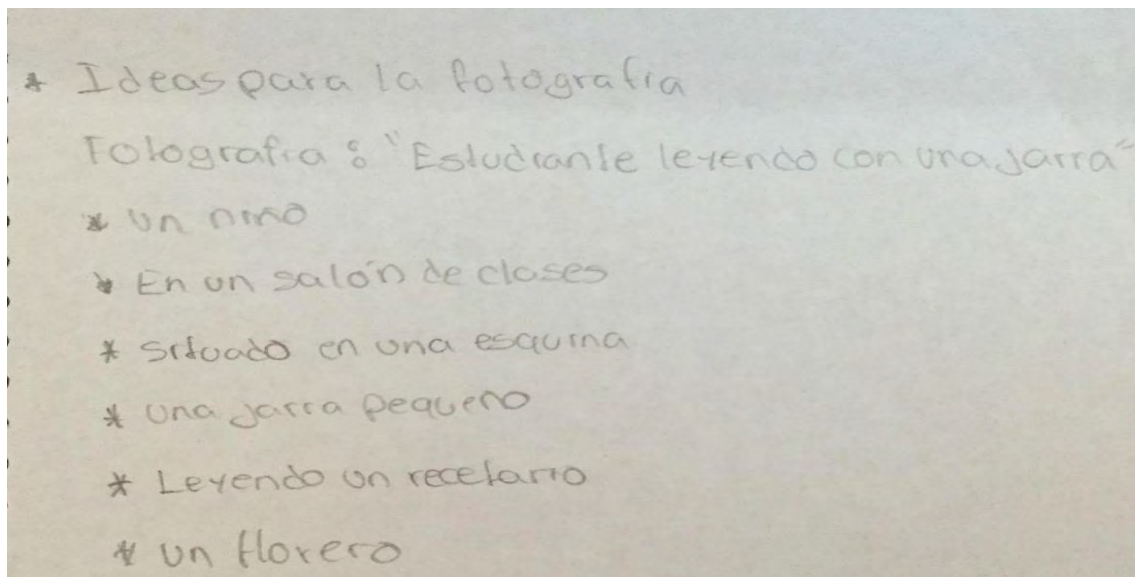 * Ideas para la fotografia
Fotografia : "Estudiante leyendo con una jarra"
* un niño
* En un salón de clases
* Situado en una esquina
* una jarra pequeño
* Leyendo un recetario
* un florero